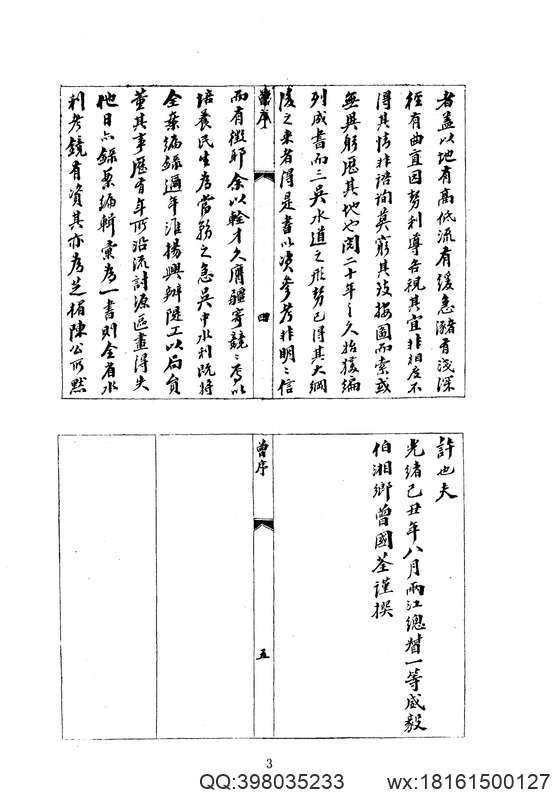 者蓋以地有高低流有緩急瀦有淺深
徑有曲直因勢利導各視其宜非相度不
得其情非諮詢莫窮其致按圖而索或
無與躬歷其地也閱二十年之久始獲編
列成書而三吳水道之形勢已得其大綱
後之來者得是書以資參考非明〻信
曾序
四
而有徵耶余以輇才久膺疆寄競〻焉以
培養民生為當務之急吳中水利既將
全案編錄邇年淮揚興辦隄工以局員
董其事歷有年所沿流討源區畫得失
他日亦錄案編輯彙為一書則全省水
利考鏡有資其亦為芝楣陳公所默
許也夫
光緒己丑年八月兩江總督一等威毅
伯湘鄉曾國荃謹撰
曾序
五
3
QQ:398035233
wx:18161500127